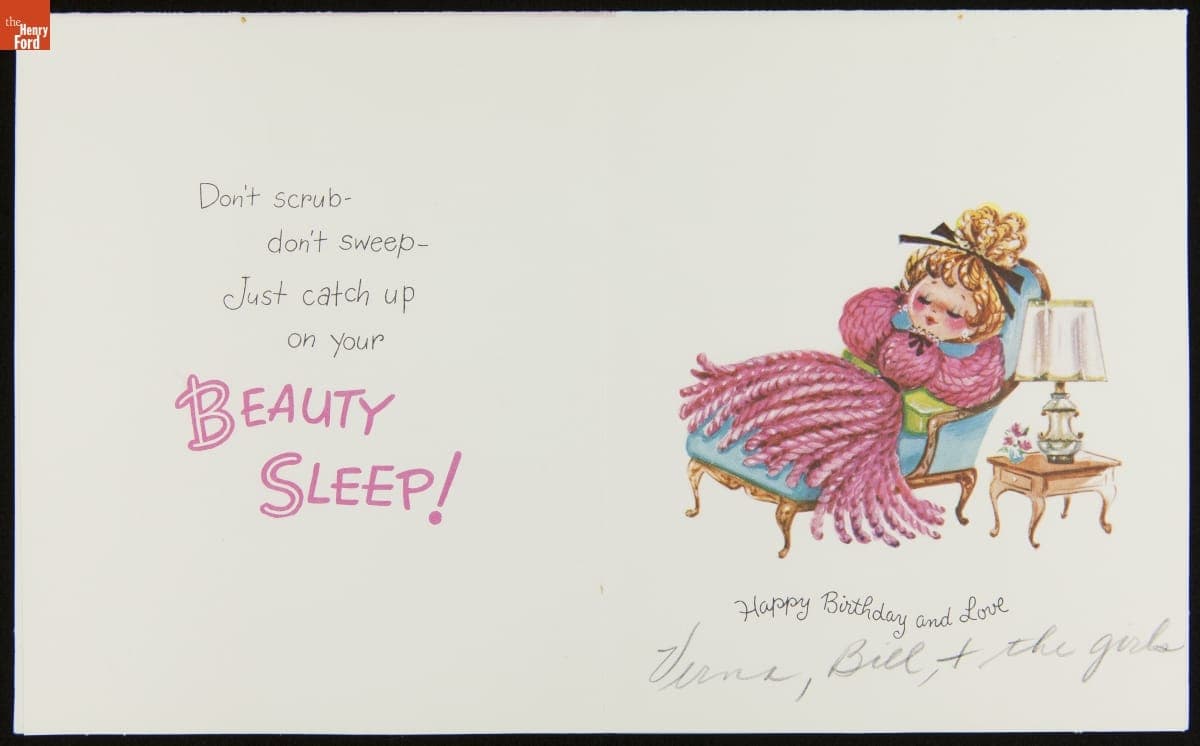 the
Henry
Ford
Don't scrub-
don't sweep-
Just catch up
on your
BEAUTY
SLEEP!
Happy Birthday and Love
Verna, Bill, + the girls